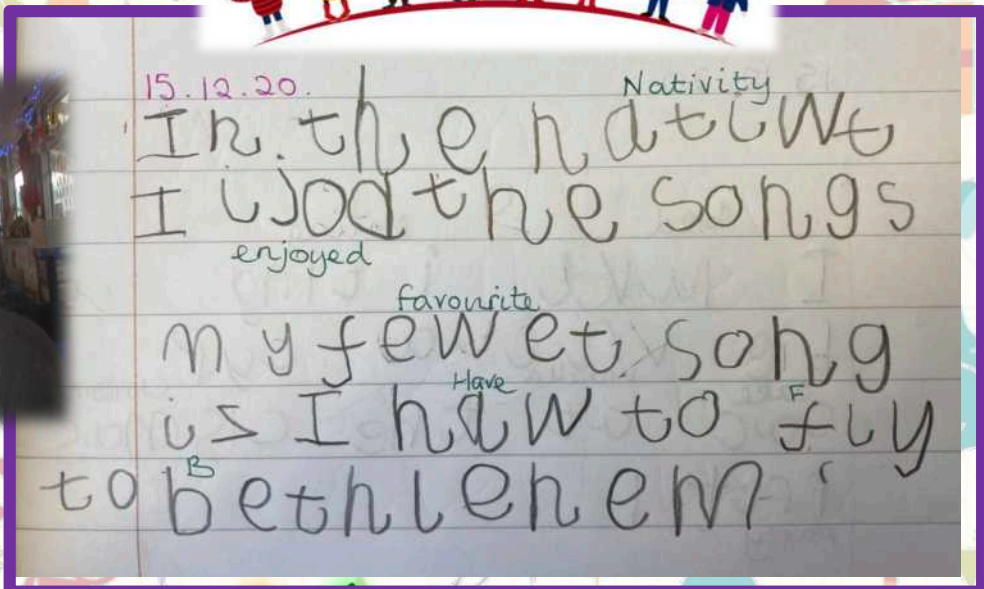 15.12.20.
Nativity
In. the natiwt
I ijod the songs
enjoyed
favourite
my fewet song
Have
is I haw to fly
F
to bethlehem
B